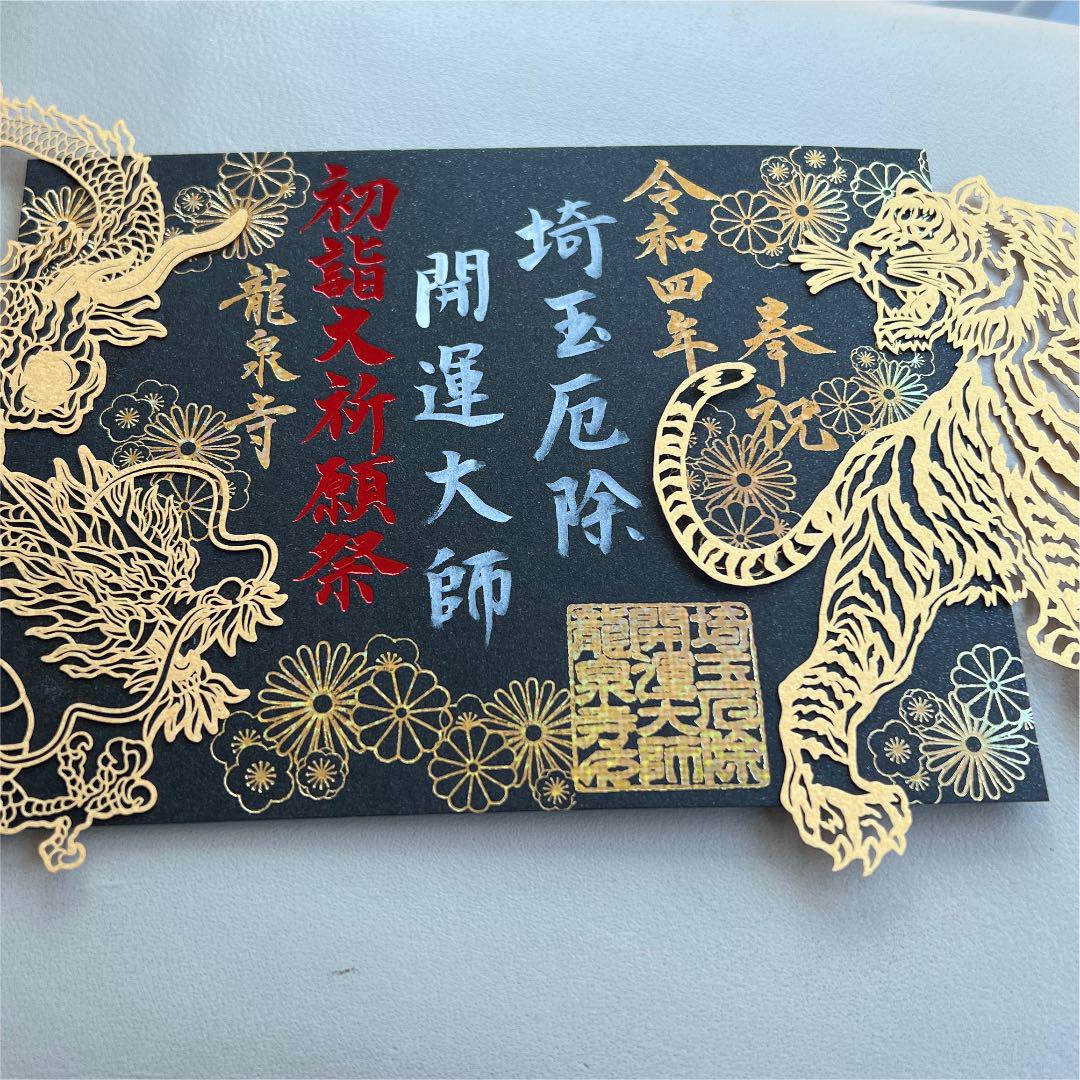 奉祝
令和四年
埼玉厄除
開運大師
初詣大祈願祭
龍泉寺
埼玉厄除
開運大師
龍泉寺印